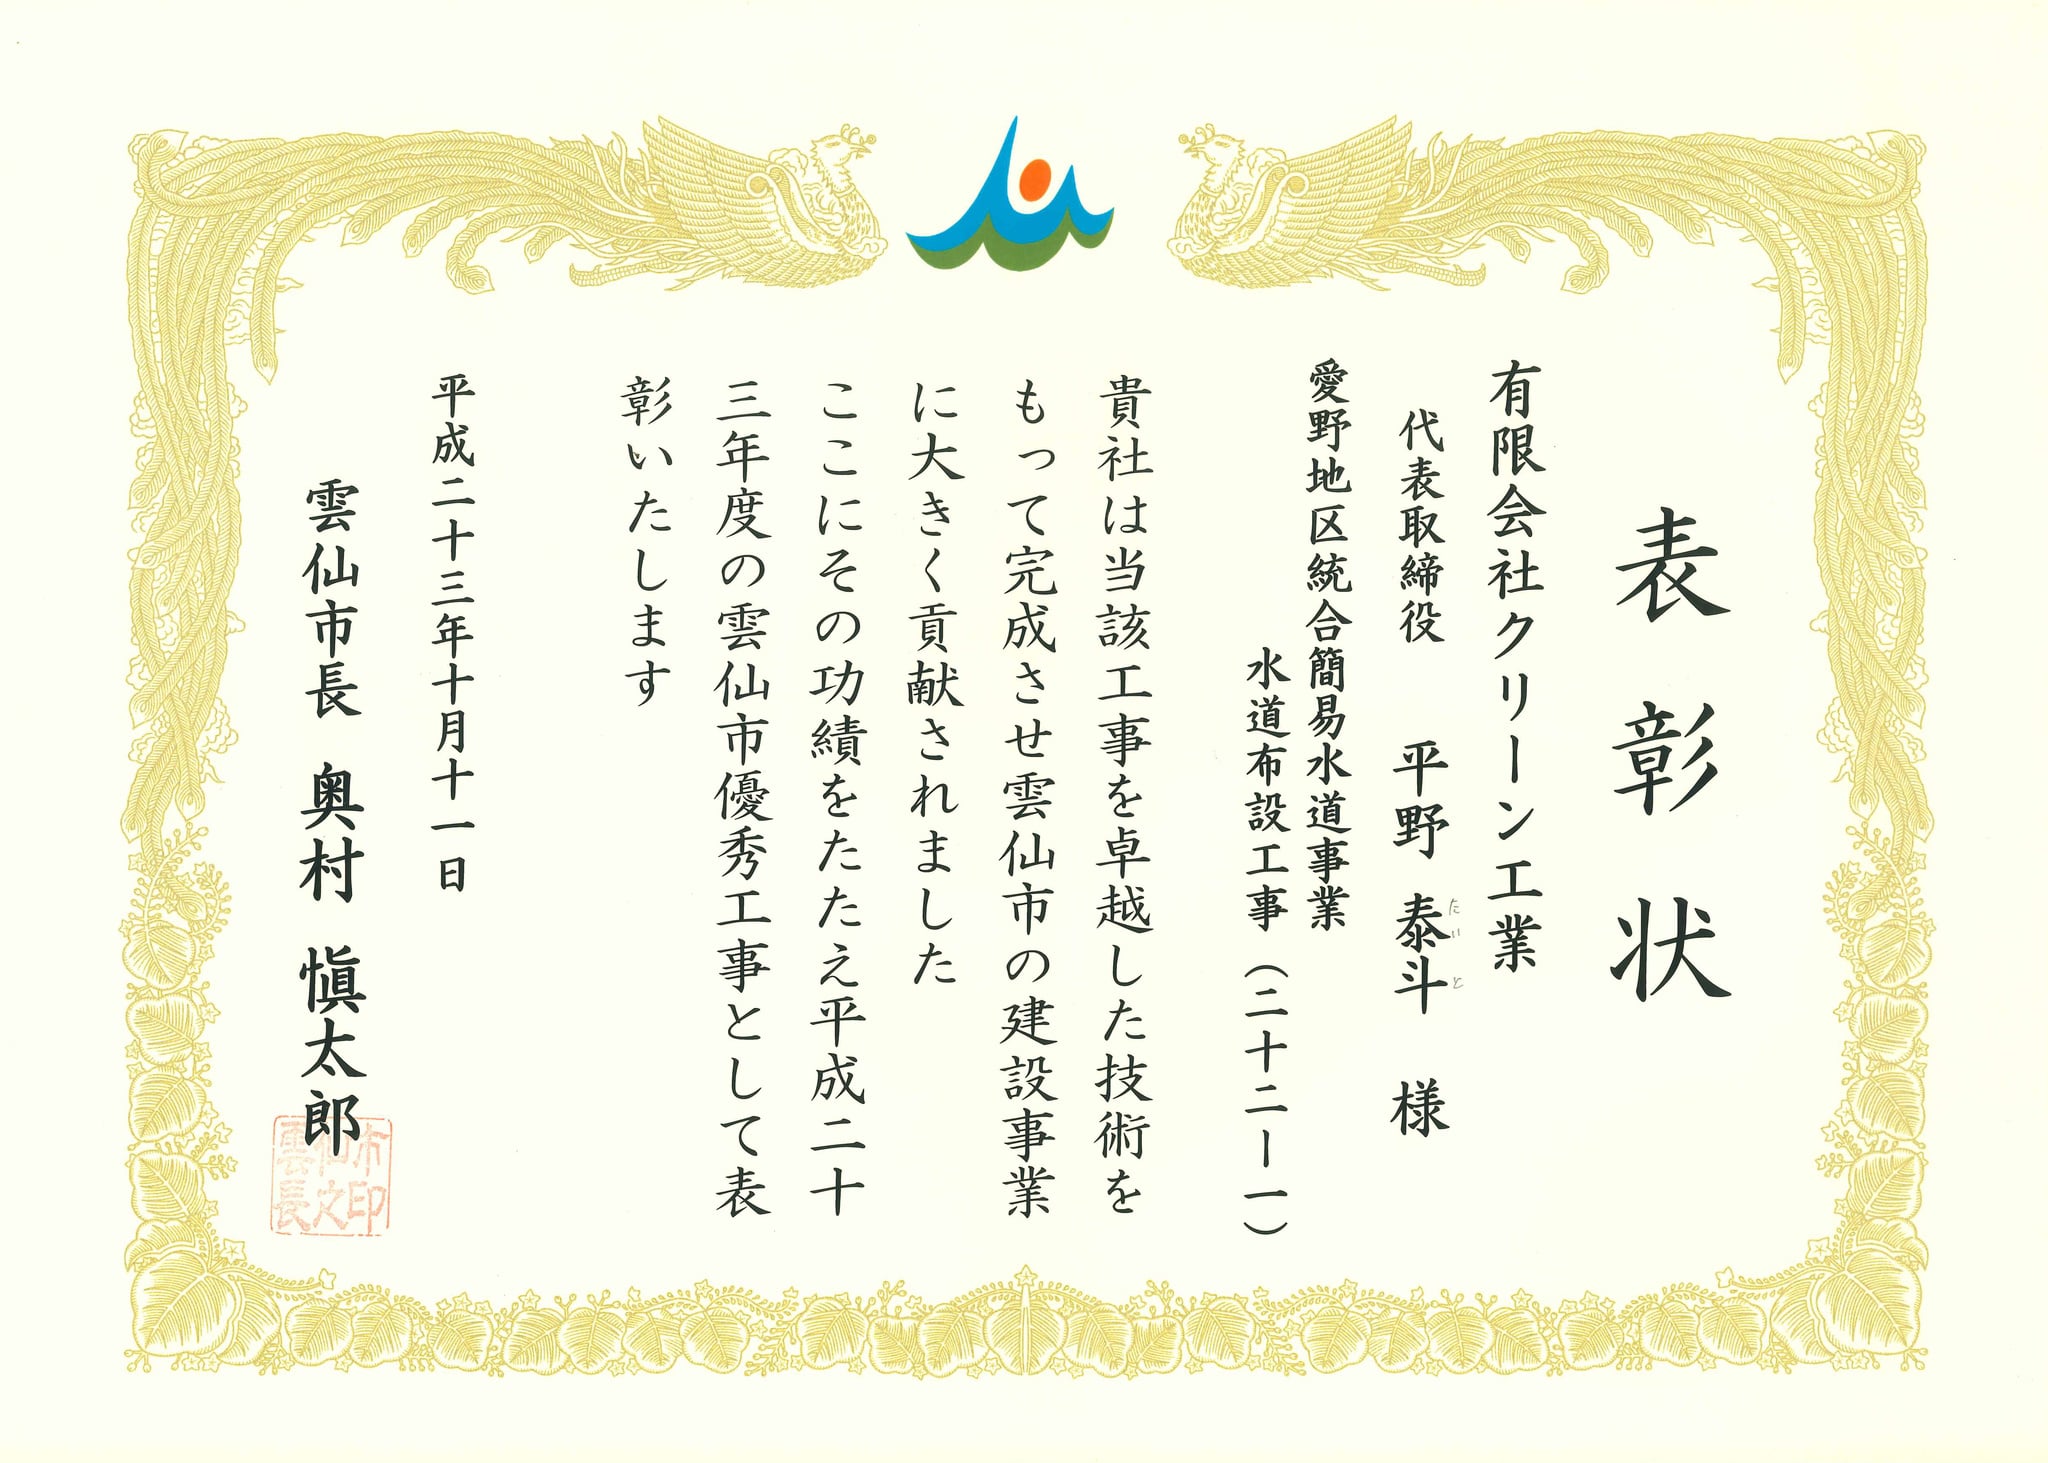 表彰状
有限会社クリーン工業
代表取締役 平野 泰斗 様
たいと
愛野地区統合簡易水道事業
水道布設工事(二十二ー一)
貴社は当該工事を卓越した技術を
もって完成させ雲仙市の建設事業
に大きく貢献されました
ここにその功績をたたえ平成二十
三年度の雲仙市優秀工事として表
彰いたします
平成二十三年十月十一日
雲仙市長 奥村 愼太郎
雲仙市長之印